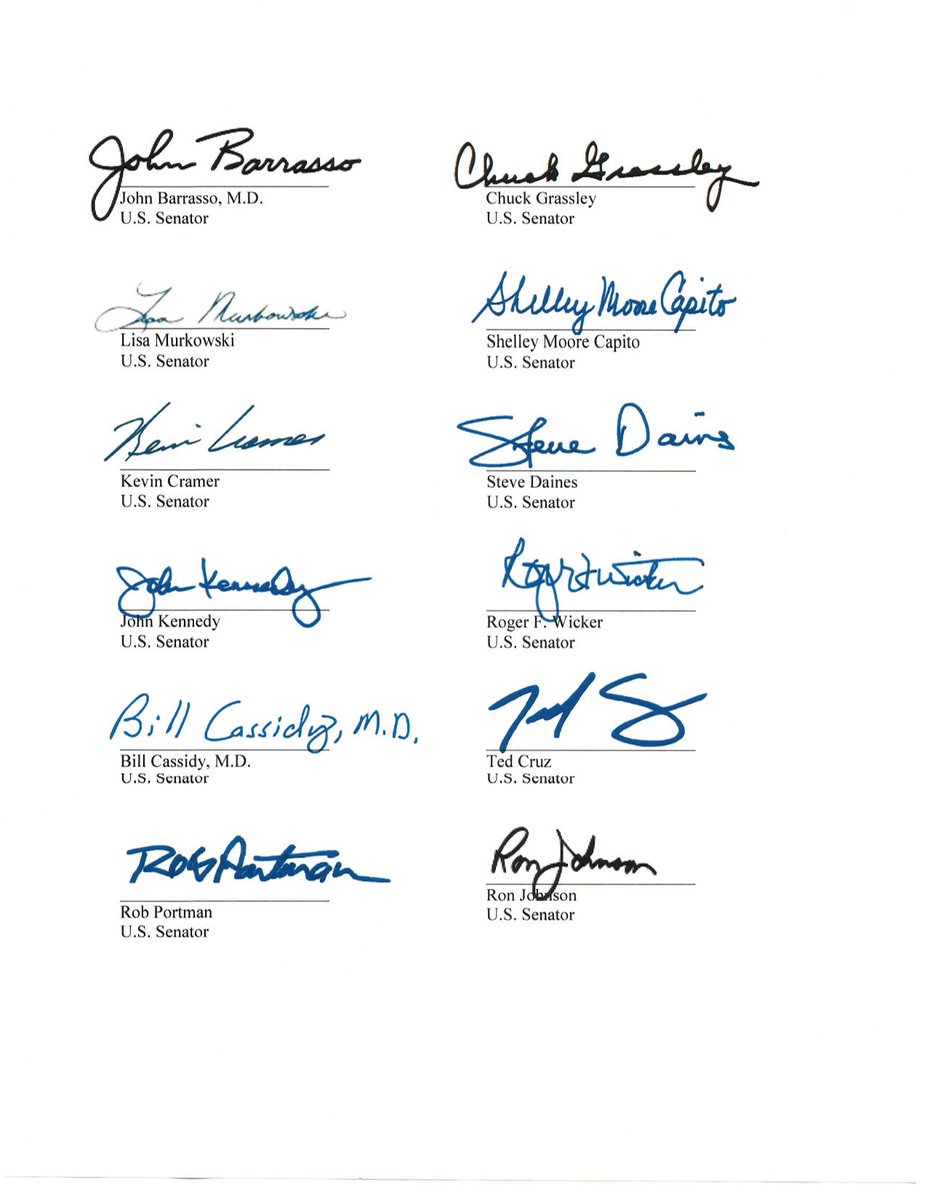 John Barrasso
John Barrasso, M.D.
U.S. Senator
Chuck Grassley
Chuck Grassley
U.S. Senator
Lisa Murkowski
Lisa Murkowski
U.S. Senator
Shelley Moore Capito
Shelley Moore Capito
U.S. Senator
Kevin Cramer
Kevin Cramer
U.S. Senator
Steve Daines
Steve Daines
U.S. Senator
John Kennedy
John Kennedy
U.S. Senator
Roger F Wicker
Roger F. Wicker
U.S. Senator
Bill Cassidy, M.D.
Bill Cassidy, M.D.
U.S. Senator
Ted Cruz
Ted Cruz
U.S. Senator
Rob Portman
Rob Portman
U.S. Senator
Ron Johnson
Ron Johnson
U.S. Senator